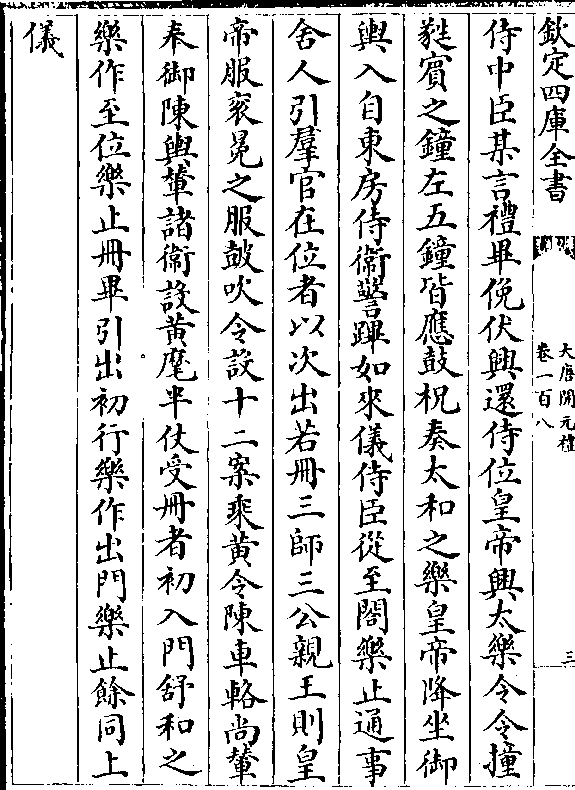 欽定四庫全書
大唐開元禮
卷一百八
三
侍中臣某言禮畢俛伏興還侍位皇帝興太樂令令撞
蕤賓之鐘左五鐘皆應鼓柷奏太和之樂皇帝降坐御
輿入自東房侍衞警蹕如來儀侍臣從至閤樂止通事
舍人引羣官在位者以次出若冊三師三公親王則皇
帝服衮冕之服鼓吹令設十二案乘黃令陳車輅尚輦
奉御陳輿輦諸衞設黃麾半仗受冊者初入門舒和之
樂作至位樂止冊畢引出初行樂作出門樂止餘同上
儀